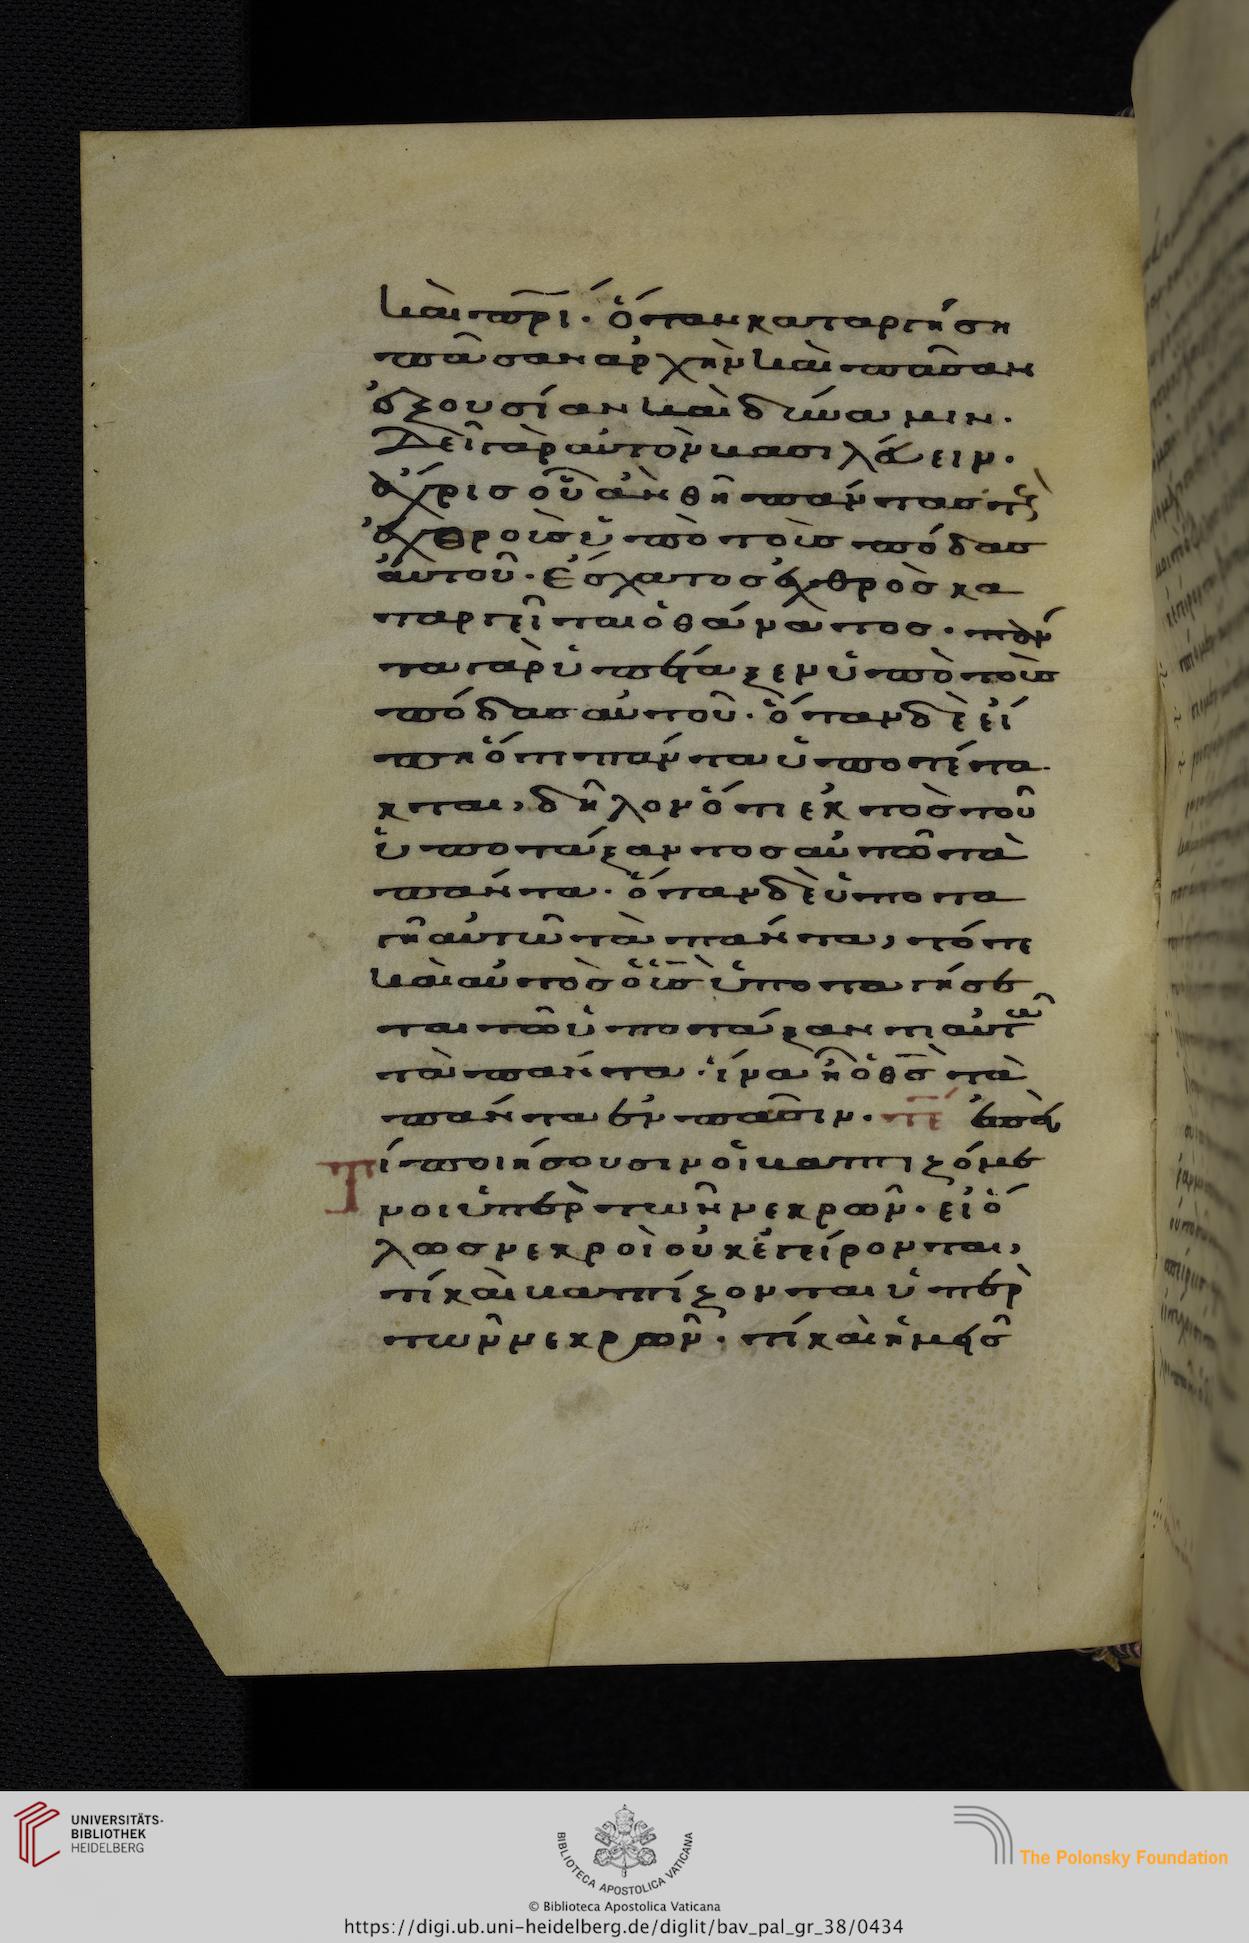 καὶ πρι· ὅταν καταργήση
πᾶσαν ἀρχὴν καὶ πᾶσαν
ἐξουσίαν καὶ δύναμιν.
Δεῖ γὰρ αὐτὸν βασιλεύειν.
ἄχρισ οὗ ἂν θῆ πάντασ τοὺς
ἐχθροὺσ ὑπὸ τοὺσ πόδασ
αὐτοῦ· ἔσχατοσ ἐχθρὸσ κα
ταργεῖται ὁ θάνατοσ· πάν
τα γὰρ ὑπέταξεν ὑπὸ τοὺσ
πόδασ αὐτοῦ· ὅταν δὲ εἴ
πη ὅτι πάντα ὑποτέτα
κται, δῆλον ὅτι ἐκτὸσ τοῦ
ὑποτάξαντοσ αὐτῶ τὰ
πάντα· ὅταν δὲ ὑποτα
γῆ αὐτῶ τὰ πάντα, τότε
καὶ αὐτὸσ ὁ υἱσ ὑποταγήσε
ται τῶ ὑποτάξαντι αὐτῶ
τὰ πάντα· ἵνα ἦ ὁ θσ τὰ
πάντα ἐν πᾶσιν· τε ἐπεὶ
Τί ποιήσουσιν οἱ βαπτιζόμε
νοι ὑπὲρ τῶν νεκρῶν· εἰ ὅ
λωσ νεκροὶ οὐκ ἐγείρονται,
τί καὶ βαπτίζονται ὑπὲρ
τῶν νεκρῶν· τί καὶ ἡμεῖσ
UNIVERSITÄTS-
BIBLIOTHEK
HEIDELBERG
BIBLIOTECA APOSTOLICA VATICANA
The Polonsky Foundation
© Biblioteca Apostolica Vaticana
https://digi.ub.uni-heidelberg.de/diglit/bav_pal_gr_38/0434